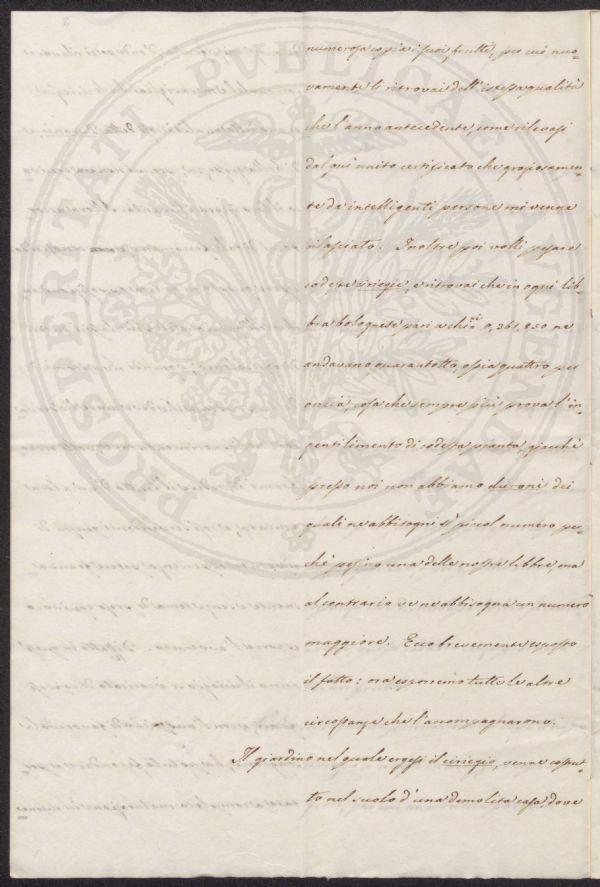 numerosa copia i suoi frutti, per cui nuo-
vamente li ritrovai dell'istessa qualità
che l'anno antecedente come rilevasi
dal qui unito certificato che graziosamen-
te da intelligenti persone mi venne
rilasciato. Inoltre poi volli pesare
codeste ciriegie, e ritrovai che in ogni lib-
bra bolognese pari a chi. 0,361.850 ne
andavano quarantotto, ossia quattro per
oncia, cosa che sempre più prova l'in-
gentilimento di codesta pianta, giacchè
presso noi non abbiamo duroni dei
quali ne abbisogni sì piccol numero per-
chè pesino una delle nostre libbre, ma
al contrario ve ne abbisogna un numero
maggiore. Ecco brevemente esposto
il fatto: ora esporremo tutte le altre
circostanze che l'accompagnarono.
Il giardino nel quale ergesi il ciriegio, venne costrut-
to nel suolo d'una demolita casa, dove
PROSPERITATI PUBLICAE AUGENDAE